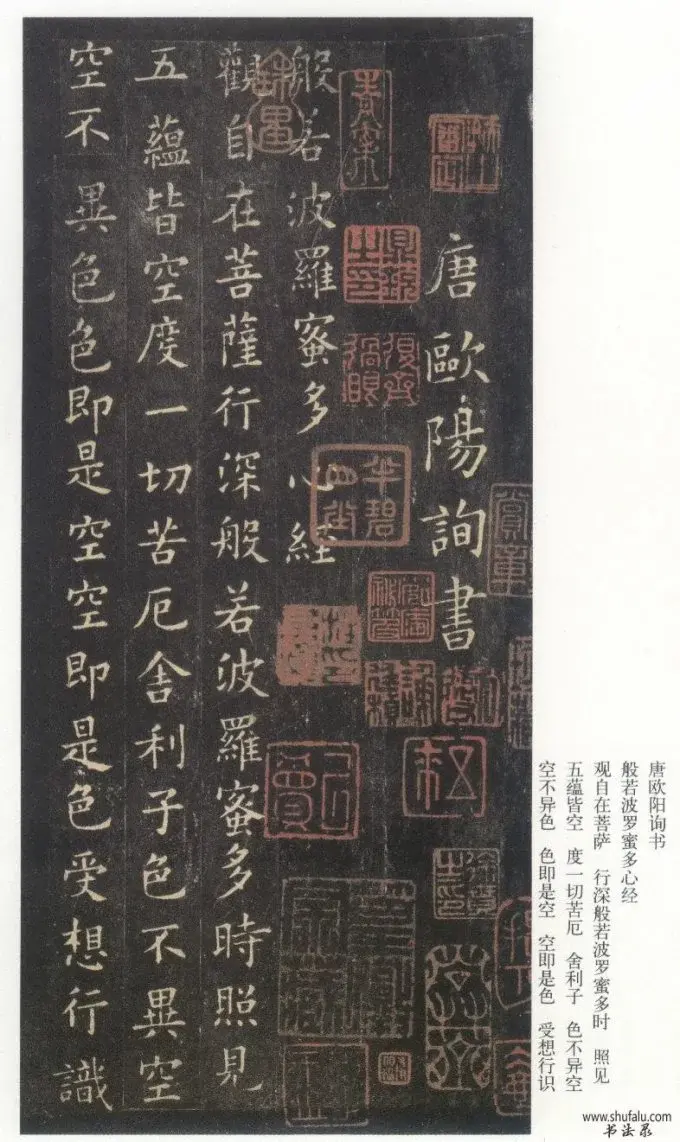 唐歐陽詢書
般若波羅蜜多心経
觀自在菩薩行深般若波羅蜜多時照見
五蘊皆空度一切苦厄舍利子色不異空
空不異色色即是空空即是色受想行識
唐欧阳询书
般若波罗蜜多心经
观自在菩萨 行深般若波罗蜜多时 照见
五蕴皆空 度一切苦厄 舍利子 色不异空
空不异色 色即是空 空即是色 受想行识
www.shufalu.com
书法录